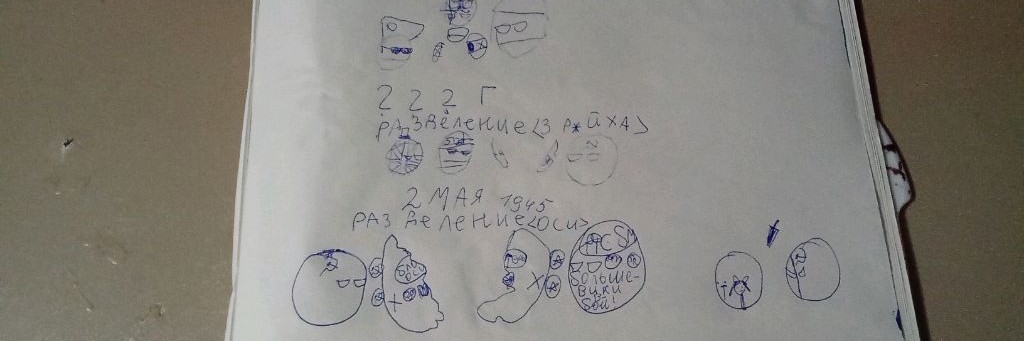 2 2 2 Г
РАЗДЕЛЕНИЕ<3 Р*ЙХА>
2 МАЯ 1945
РАЗДЕЛЕНИЕ<ОСИ>
БОЛЬШЕ-
ВИКИ